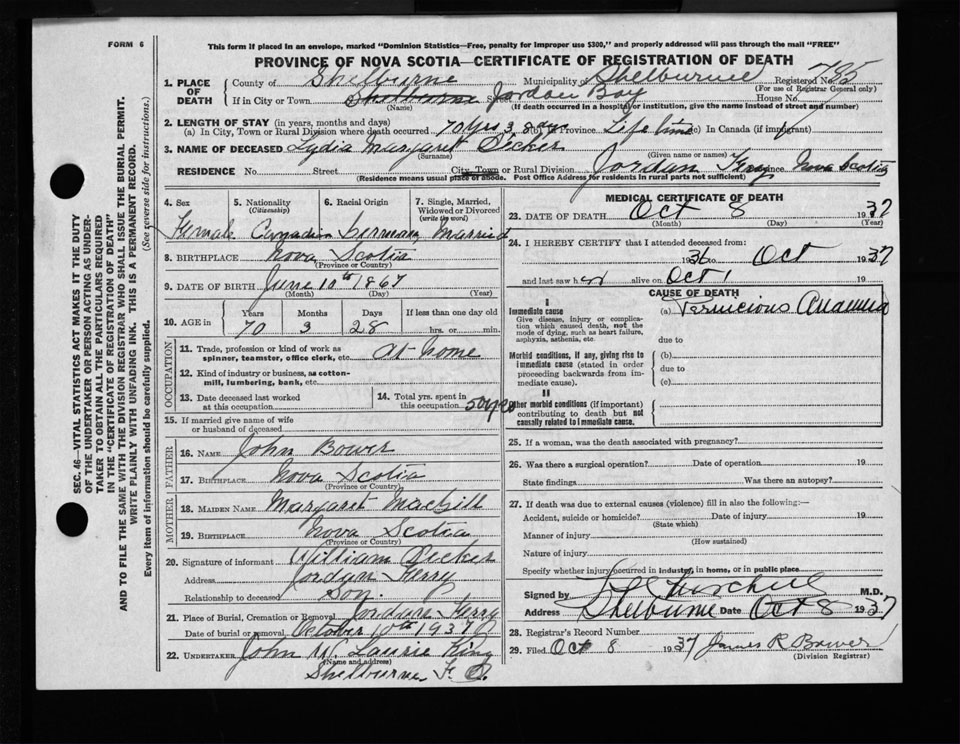 FORM 6
This form if placed in an envelope, marked "Dominion Statistics—Free, penalty for improper use $300," and properly addressed will pass through the mail "FREE"
PROVINCE OF NOVA SCOTIA—CERTIFICATE OF REGISTRATION OF DEATH
1. PLACE OF DEATH
County of Shelburne Municipality of Shelburne Registered No. 795
(For use of Registrar General only)
If in City or Town Shelburne Jordan Bay House No.
(Name) (If death occurred in a hospital or institution, give the name instead of street and number)
2. LENGTH OF STAY (in years, months and days)
(a) In City, Town or Rural Division where death occurred 70 yrs 3 (b) In Province Life time (c) In Canada (if immigrant)
3. NAME OF DECEASED Lydia Margaret Decker
(Surname) (Given name or names)
RESIDENCE No. Street City, Town or Rural Division Jordan Ferry Province Nova Scotia
(Residence means usual place of abode. Post Office Address for residents in rural parts not sufficient)
4. Sex
5. Nationality (Citizenship)
6. Racial Origin
7. Single, Married, Widowed or Divorced (write the word)
Female Canadian German Married
8. BIRTHPLACE Nova Scotia
(Province or Country)
9. DATE OF BIRTH June 10th 1867
(Month) (Day) (Year)
10. AGE in
Years Months Days If less than one day
70 3 28 hrs. or min.
OCCUPATION
11. Trade, profession or kind of work as spinner, teamster, office clerk, etc. at home
12. Kind of industry or business, as cotton-mill, lumbering, bank, etc.
13. Date deceased last worked at this occupation
14. Total yrs. spent in this occupation 50 yrs
15. If married give name of wife or husband of deceased
FATHER
16. NAME John Bower
17. BIRTHPLACE Nova Scotia
(Province or Country)
MOTHER
18. MAIDEN NAME Margaret MacGill
19. BIRTHPLACE Nova Scotia
(Province or Country)
20. Signature of informant William Decker
Address Jordan Ferry
Relationship to deceased Son.
21. Place of Burial, Cremation or Removal Jordan Ferry
Date of burial or removal October 10th 1937
22. UNDERTAKER John W. Laurie King
(Name and address)
Shelburne
MEDICAL CERTIFICATE OF DEATH
23. DATE OF DEATH Oct 8 1937
(Month) (Day) (Year)
24. I HEREBY CERTIFY that I attended deceased from:
1936 to Oct 1937
and last saw h er alive on Oct 1 19
CAUSE OF DEATH
I
Immediate cause
Give disease, injury or complication which caused death, not the mode of dying, such as heart failure, asphyxia, asthenia, etc.
(a) Pernicious Anaemia
due to
Morbid conditions, if any, giving rise to immediate cause (stated in order proceeding backwards from immediate cause).
(b)
due to
(c)
II
Other morbid conditions (if important) contributing to death but not causally related to immediate cause.
25. If a woman, was the death associated with pregnancy?
26. Was there a surgical operation? Date of operation 19
State findings Was there an autopsy?
27. If death was due to external causes (violence) fill in also the following:—
Accident, suicide or homicide? Date of injury 19
(State which)
Manner of injury
(How sustained)
Nature of injury
Specify whether injury occurred in industry, in home, or in public place
Signed by Churchill M.D.
Address Shelburne Date Oct 8 1937
28. Registrar's Record Number
29. Filed Oct 8 1937 James R Bower
(Division Registrar)
SEC. 46—VITAL STATISTICS ACT MAKES IT THE DUTY
OF THE UNDERTAKER OR PERSON ACTING AS UNDER-
TAKER TO OBTAIN ALL THE PARTICULARS REQUIRED
IN THE "CERTIFICATE OF REGISTRATION OF DEATH"
AND TO FILE THE SAME WITH THE DIVISION REGISTRAR WHO SHALL ISSUE THE BURIAL PERMIT.
WRITE PLAINLY WITH UNFADING INK. THIS IS A PERMANENT RECORD.
Every item of information should be carefully supplied. (See reverse side for instructions.)